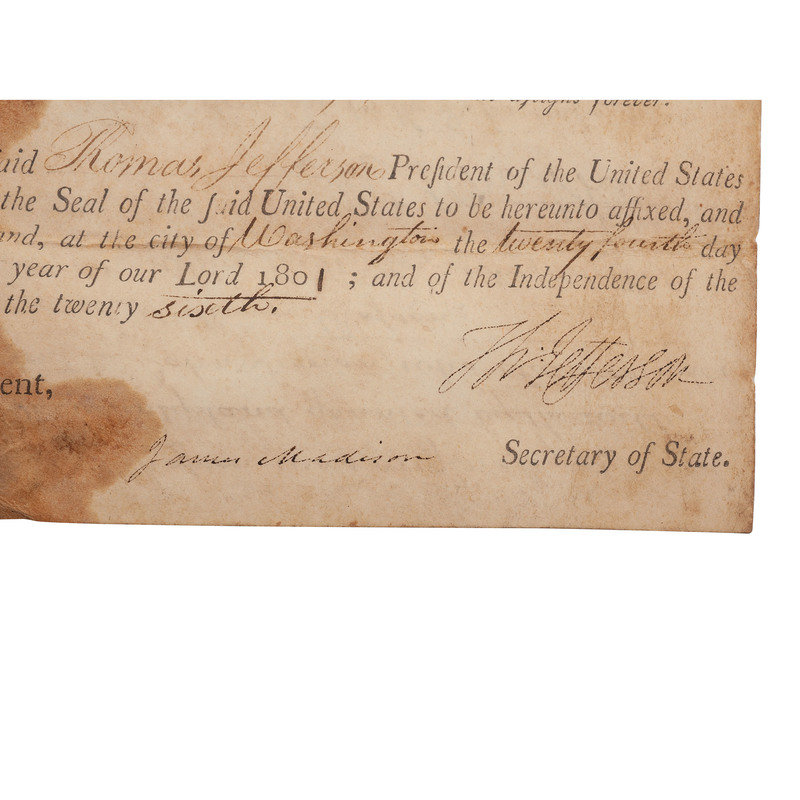 aſsigns forever.
ſaid Thomas Jefferson Preſident of the United States
the Seal of the ſaid United States to be hereunto affixed, and
and, at the city of Washington the twenty fourth day
year of our Lord 1801; and of the Independence of the
the twenty sixth.
Th: Jefferson
ent,
James Madison Secretary of State.